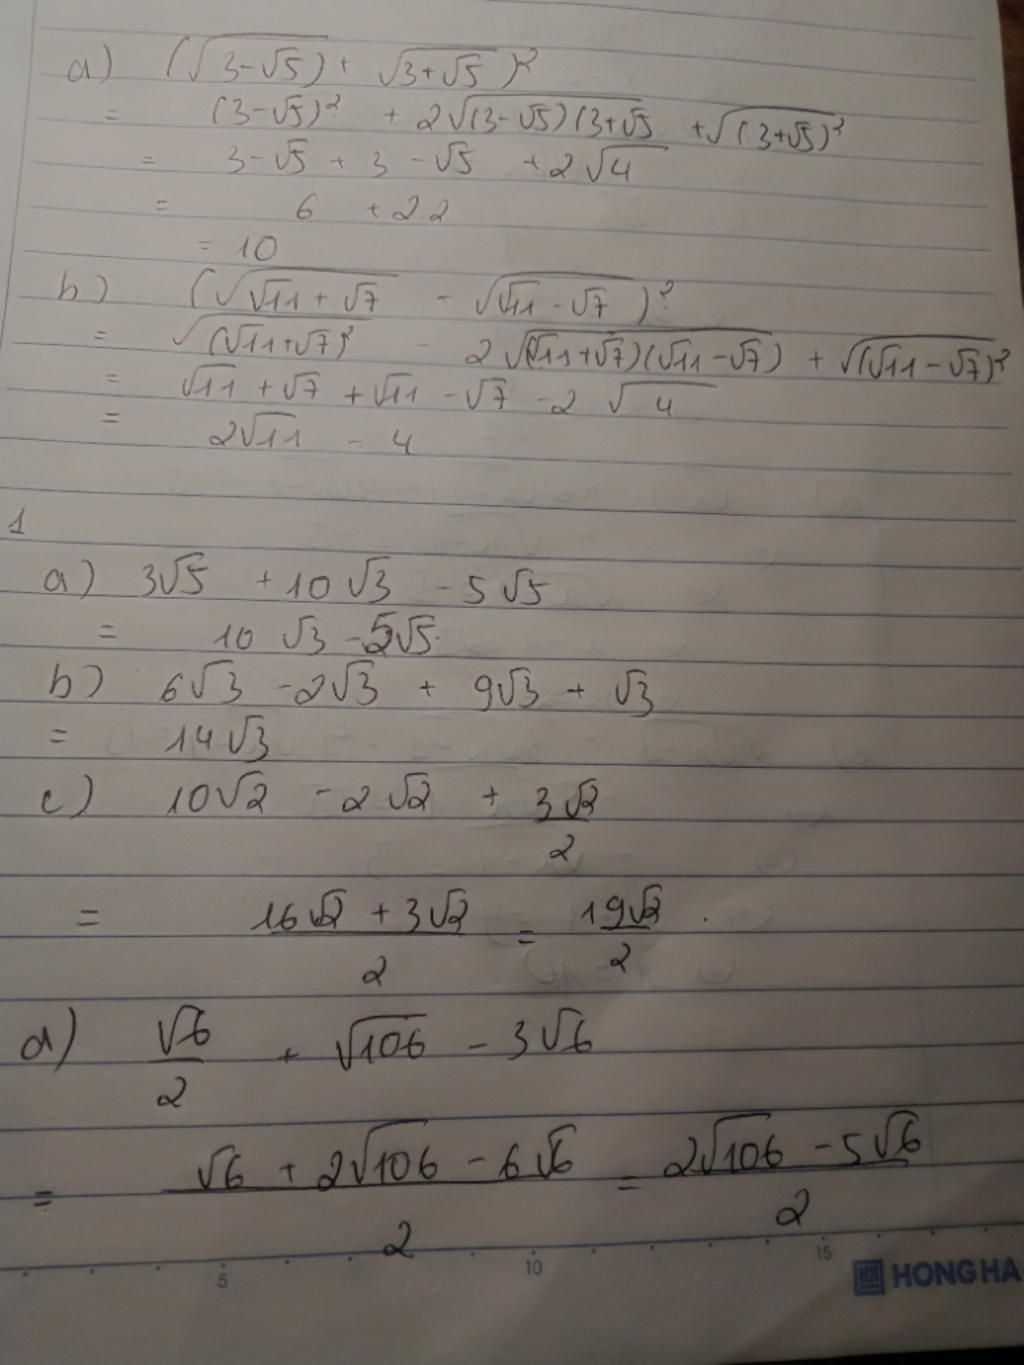 a) (√(3-√5) + √(3+√5))²
= (3-√5)² + 2√((3-√5)(3+√5) + √((3+√5)²
= 3-√5 + 3 -√5 + 2√4
= 6 + 2.2
= 10
b) (√(√11 + √7) - √(√11 - √7))²
= √((√11+√7)² - 2√((√11+√7)(√11-√7)) + √((√11-√7)²
= √11 + √7 + √11 - √7 - 2 √4
= 2√11 - 4
1
a) 3√5 + 10√3 - 5√5
= 10 √3 - 5√5.
b) 6√3 - 2√3 + 9√3 + √3
= 14√3
c) 10√2 - 2√2 + 3√2/2
= (16√2 + 3√2)/2 = 19√2/2 .
d) √6/2 + √106 - 3√6
= (√6 + 2√106 - 6√6)/2 = (2√106 - 5√6)/2
5 10 15
HONG HA